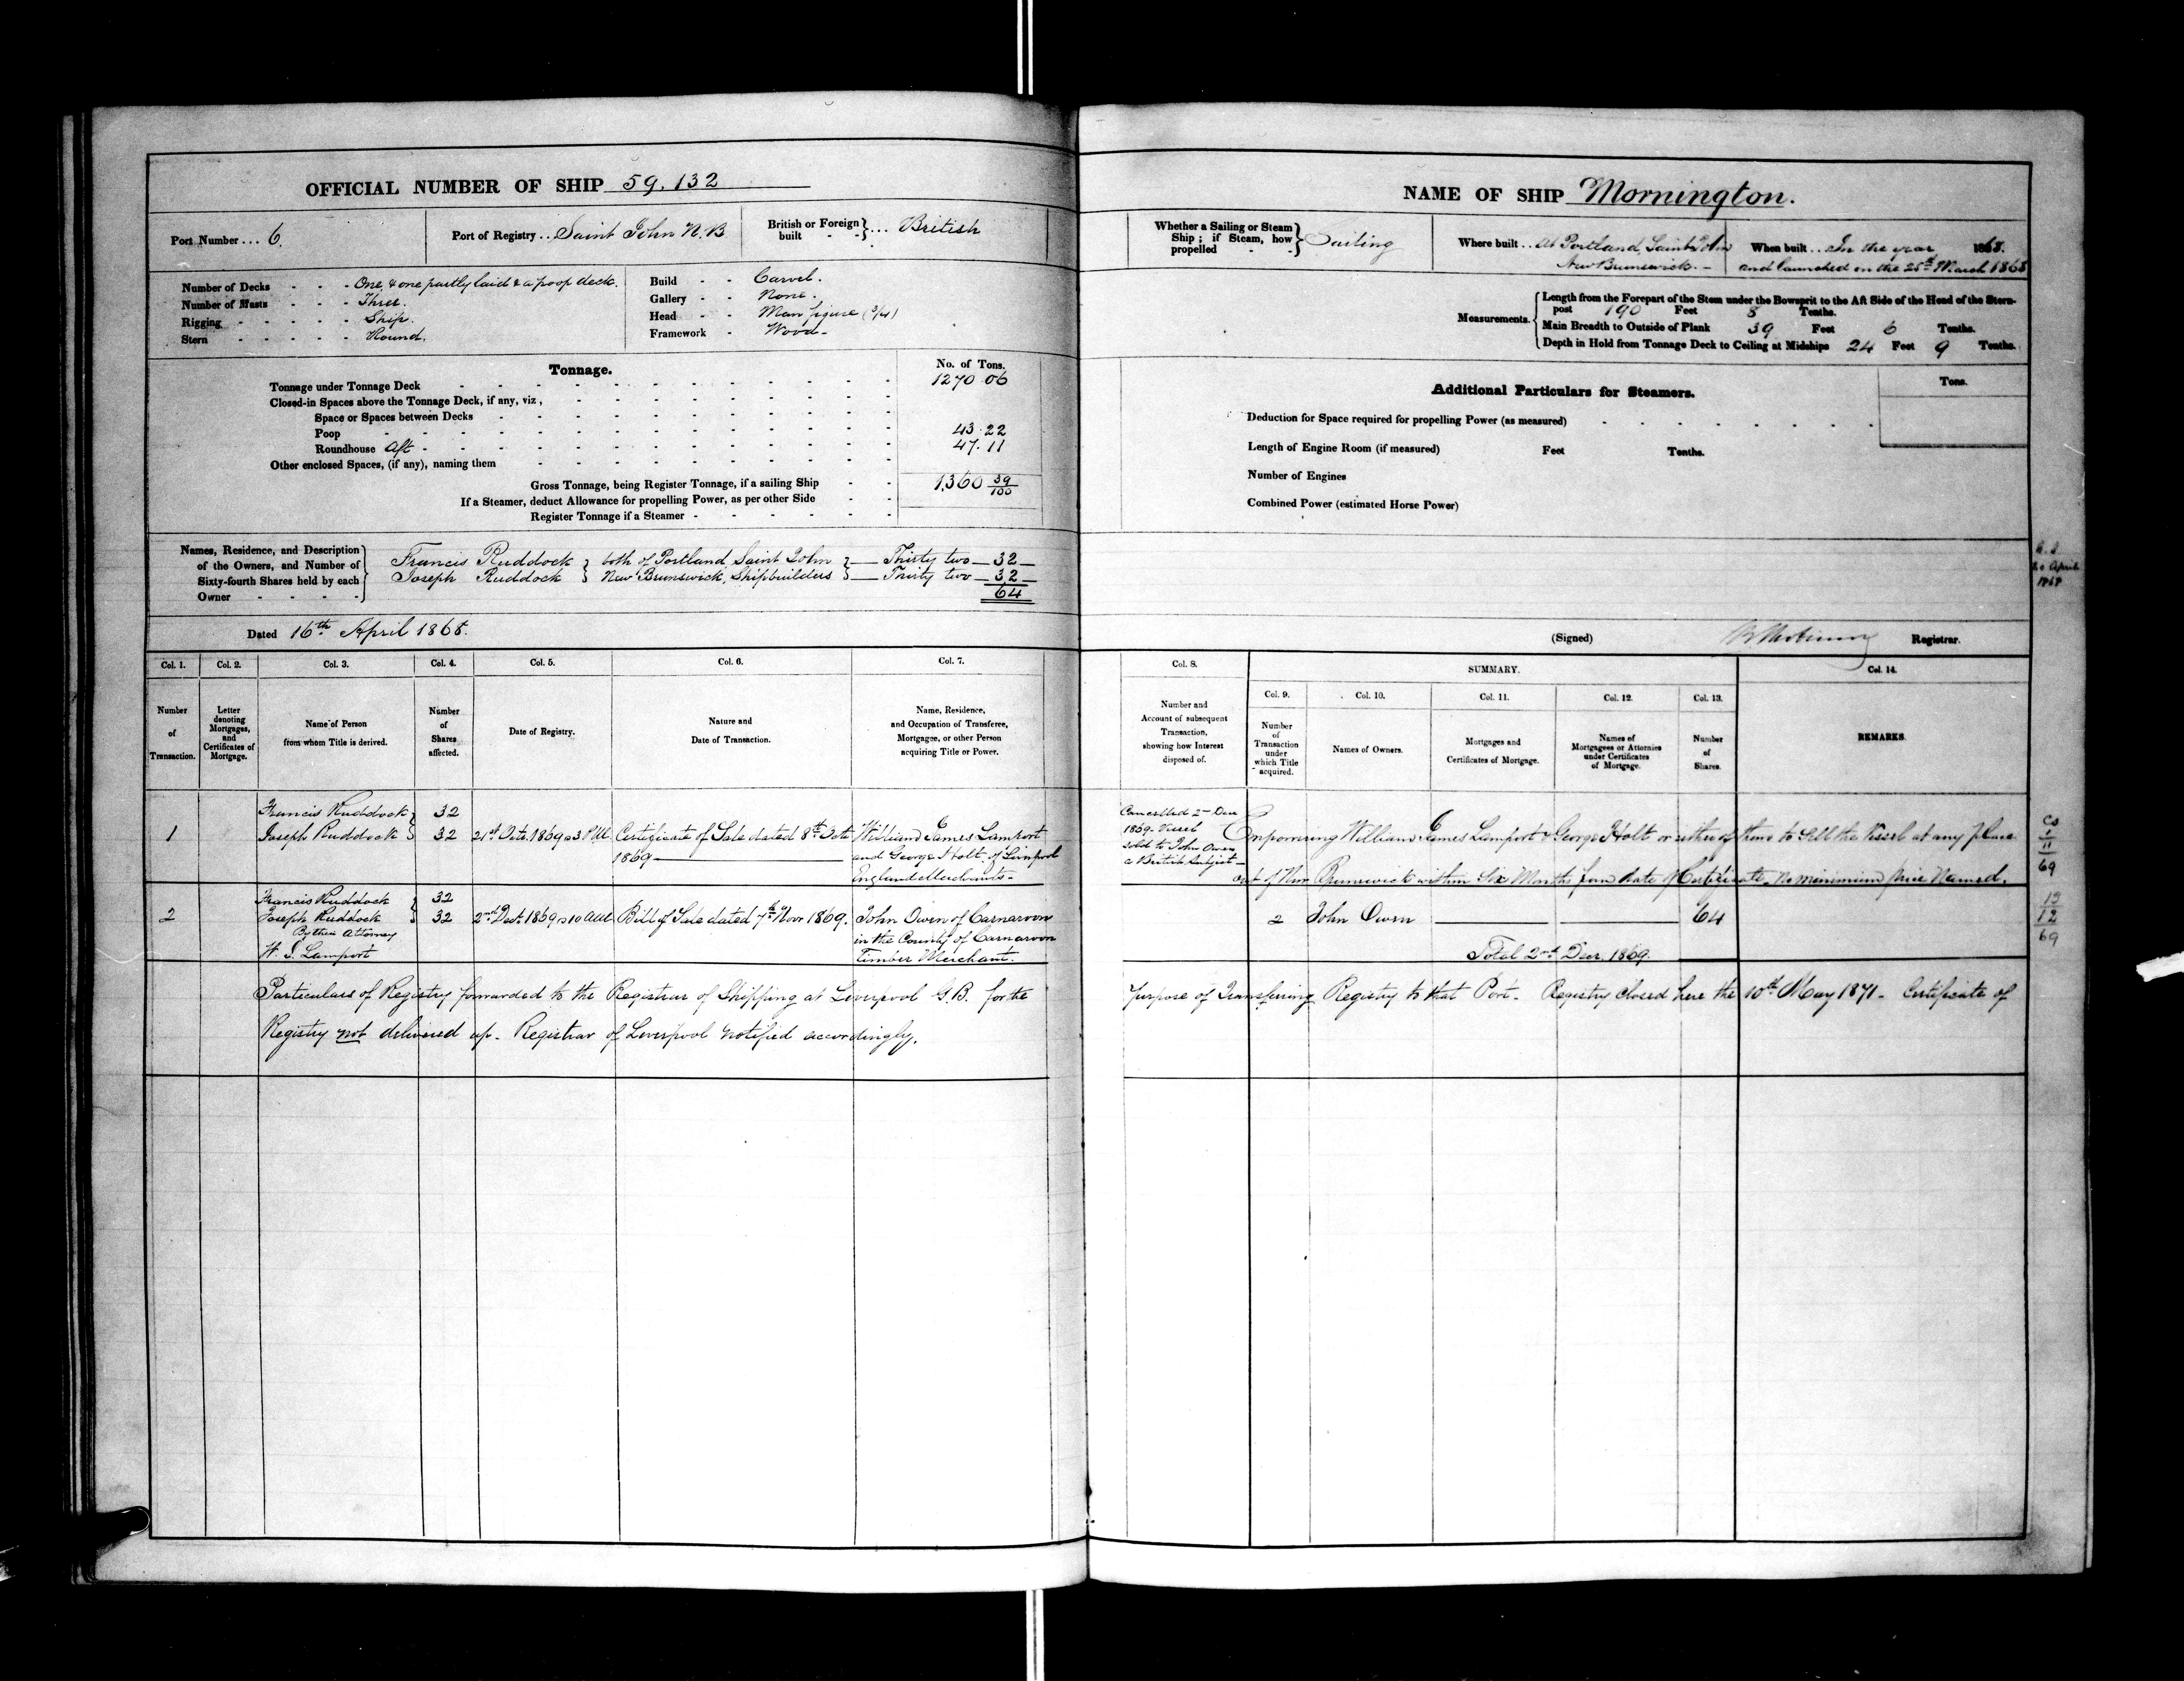 OFFICIAL NUMBER OF SHIP 59.132
Port Number ... 6.
Port of Registry .. Saint John N.B
British or Foreign built - - } ... British
Number of Decks - - - One & one partly laid & a poop deck.
Number of Masts - - - Three.
Rigging - - - - - Ship.
Stern - - - - - Round.
Build - - Carvel.
Gallery - - None.
Head - - Man figure (3/4)
Framework - Wood -
Tonnage.
No. of Tons.
Tonnage under Tonnage Deck 1270.06
Closed-in Spaces above the Tonnage Deck, if any, viz,
Space or Spaces between Decks
Poop 43.22
Roundhouse Aft 47.11
Other enclosed Spaces, (if any), naming them
Gross Tonnage, being Register Tonnage, if a sailing Ship 1360 39/100
If a Steamer, deduct Allowance for propelling Power, as per other Side
Register Tonnage if a Steamer
Names, Residence, and Description of the Owners, and Number of Sixty-fourth Shares held by each Owner
Francis Ruddock } both of Portland, Saint John } Thirty two 32
Joseph Ruddock } New Brunswick, Shipbuilders } Thirty two 32
64
Dated 16th April 1868.
Col. 1. Col. 2. Col. 3. Col. 4. Col. 5. Col. 6. Col. 7.
Number of Transaction.
Letter denoting Mortgages, and Certificates of Mortgage.
Name of Person from whom Title is derived.
Number of Shares affected.
Date of Registry.
Nature and Date of Transaction.
Name, Residence, and Occupation of Transferee, Mortgagee, or other Person acquiring Title or Power.
1
Francis Ruddock } 32
Joseph Ruddock } 32
21st Oct. 1869 @ 3 P.M.
Certificate of Sale dated 8th Oct 1869
William James Lamport
and George Holt of Liverpool
England Merchants.
2
Francis Ruddock } 32
Joseph Ruddock } 32
By their Attorney
W. J. Lamport
2nd Dec. 1869 @ 10 AM
Bill of Sale dated 7th Nov 1869.
John Owen of Carnarvon
in the County of Carnarvon
Timber Merchant.
Particulars of Registry forwarded to the Registrar of Shipping at Liverpool G.B. for the
Registry not delivered up. Registrar of Liverpool notified accordingly.
NAME OF SHIP Mornington.
Whether a Sailing or Steam Ship; if Steam, how propelled - - } Sailing
Where built .. At Portland, Saint John
New Brunswick. -
When built ... In the year 1868.
and launched on the 25th March 1868
Measurements.
Length from the Forepart of the Stem under the Bowsprit to the Aft Side of the Head of the Stern-
post 190 Feet 8 Tenths.
Main Breadth to Outside of Plank 39 Feet 6 Tenths.
Depth in Hold from Tonnage Deck to Ceiling at Midships 24 Feet 9 Tenths.
Additional Particulars for Steamers.
Tons.
Deduction for Space required for propelling Power (as measured)
Length of Engine Room (if measured) Feet Tenths.
Number of Engines
Combined Power (estimated Horse Power)
April
1868
(Signed) Registrar.
Col. 8. SUMMARY. Col. 14.
Col. 9. Col. 10. Col. 11. Col. 12. Col. 13.
Number and Account of subsequent Transaction, showing how Interest disposed of.
Number of Transaction under which Title acquired.
Names of Owners.
Mortgages and Certificates of Mortgage.
Names of Mortgagees or Attornies under Certificates of Mortgage.
Number of Shares.
REMARKS.
Cancelled 2nd Dec
1869. Vessel
sold to John Owen
a British Subject
Empowering William James Lamport & George Holt or either of them to Sell the Vessel at any place
out of New Brunswick within Six Months from date of Certificate. No minimum price Named.
CS
1
11
69
2 John Owen 64
Total 2nd Decr. 1869.
12
69
purpose of Transferring Registry to that Port. Registry Closed here the 10th May 1871. Certificate of